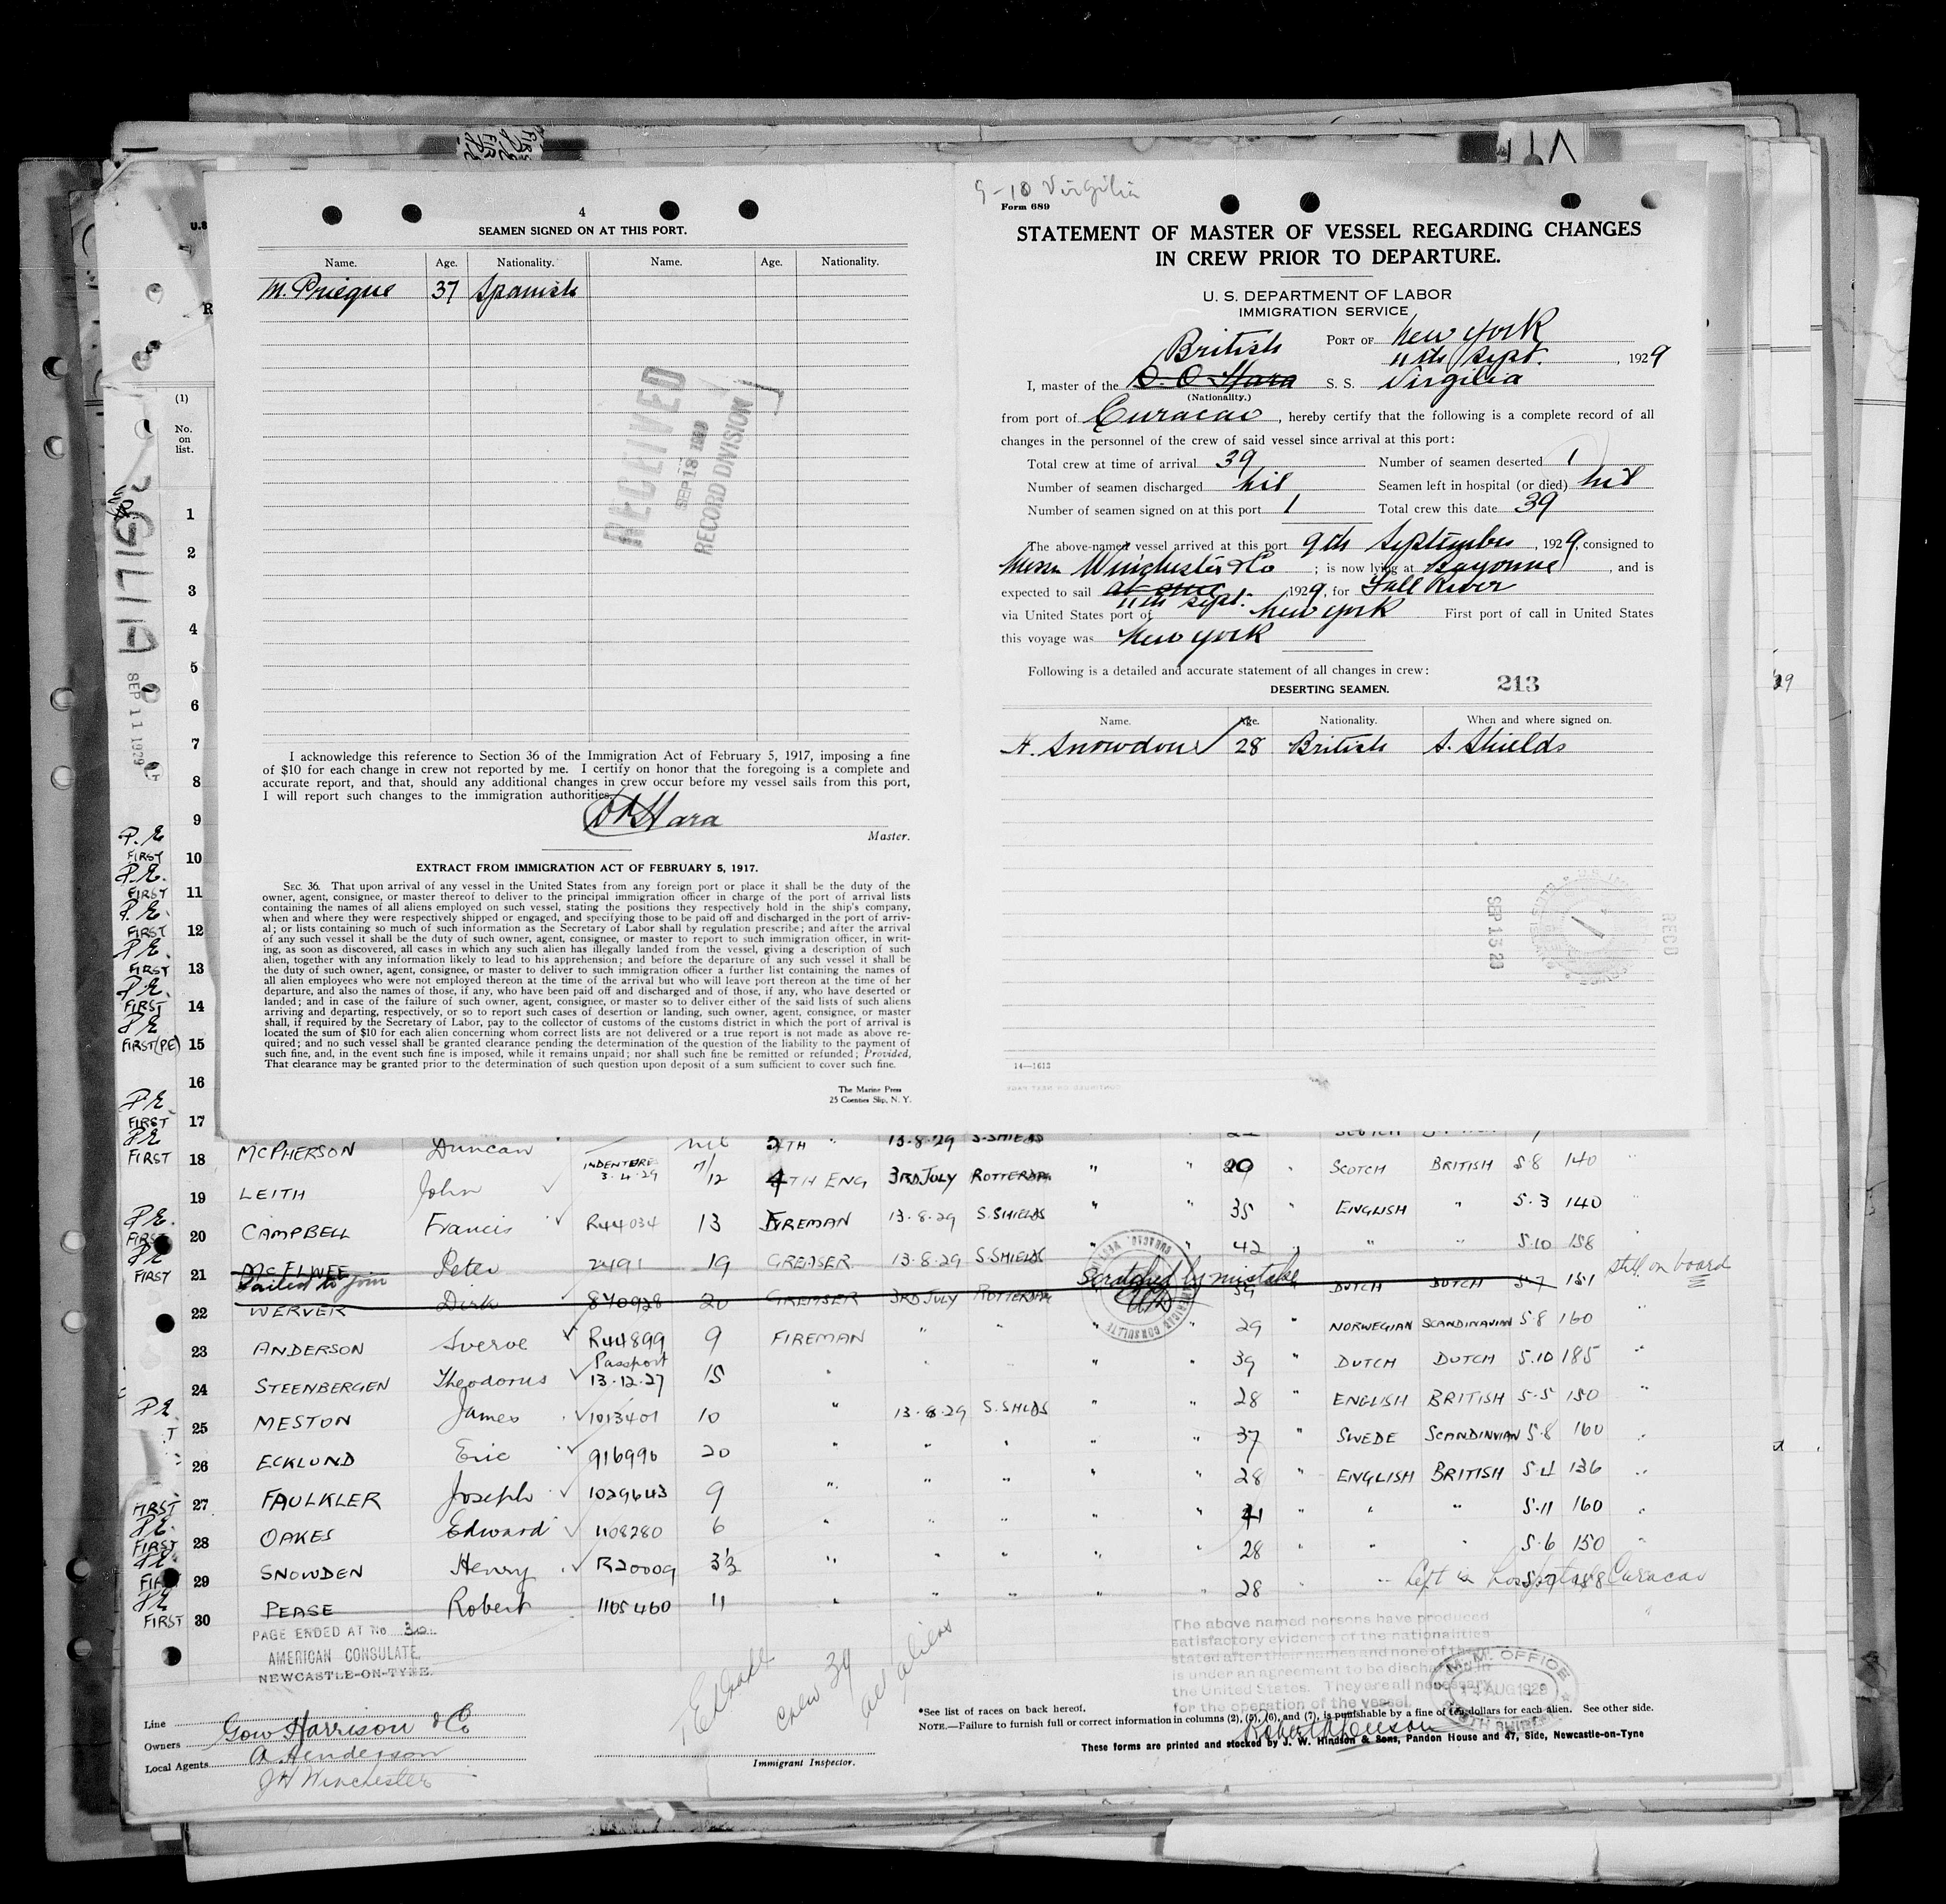 4
SEAMEN SIGNED ON AT THIS PORT.
Name. Age. Nationality. Name. Age. Nationality.
M. Prieque 37 Spanish
RECEIVED
SEP 18 1929
RECORD DIVISION
I acknowledge this reference to Section 36 of the Immigration Act of February 5, 1917, imposing a fine
of $10 for each change in crew not reported by me. I certify on honor that the foregoing is a complete and
accurate report, and that, should any additional changes in crew occur before my vessel sails from this port,
I will report such changes to the immigration authorities.
O'Hara
Master.
EXTRACT FROM IMMIGRATION ACT OF FEBRUARY 5, 1917.
SEC. 36. That upon arrival of any vessel in the United States from any foreign port or place it shall be the duty of the
owner, agent, consignee, or master thereof to deliver to the principal immigration officer in charge of the port of arrival lists
containing the names of all aliens employed on such vessel, stating the positions they respectively hold in the ship's company,
when and where they were respectively shipped or engaged, and specifying those to be paid off and discharged in the port of arriv-
al; or lists containing so much of such information as the Secretary of Labor shall by regulation prescribe; and after the arrival
of any such vessel it shall be the duty of such owner, agent, consignee, or master to report to such immigration officer, in writ-
ing, as soon as discovered, all cases in which any such alien has illegally landed from the vessel, giving a description of such
alien, together with any information likely to lead to his apprehension; and before the departure of any such vessel it shall be
the duty of such owner, agent, consignee, or master to deliver to such immigration officer a further list containing the names of
all alien employees who were not employed thereon at the time of the arrival but who will leave port thereon at the time of her
departure, and also the names of those, if any, who have been paid off and discharged and of those, if any, who have deserted or
landed; and in case of the failure of such owner, agent, consignee, or master so to deliver either of the said lists of such aliens
arriving and departing, respectively, or so to report such cases of desertion or landing, such owner, agent, consignee, or master
shall, if required by the Secretary of Labor, pay to the collector of customs of the customs district in which the port of arrival is
located the sum of $10 for each alien concerning whom correct lists are not delivered or a true report is not made as above re-
quired; and no such vessel shall be granted clearance pending the determination of the question of the liability to the payment of
such fine, and, in the event such fine is imposed, while it remains unpaid; nor shall such fine be remitted or refunded; Provided,
That clearance may be granted prior to the determination of such question upon deposit of a sum sufficient to cover such fine.
The Marine Press
25 Coenties Slip, N. Y.
9-10 Virgilia
Form 689
STATEMENT OF MASTER OF VESSEL REGARDING CHANGES
IN CREW PRIOR TO DEPARTURE.
U. S. DEPARTMENT OF LABOR
IMMIGRATION SERVICE
PORT OF New York
British 11th Sept. , 1929
I, master of the O. O'Hara S. S. Virgilia
(Nationality.)
from port of Curacao , hereby certify that the following is a complete record of all
changes in the personnel of the crew of said vessel since arrival at this port:
Total crew at time of arrival 39 Number of seamen deserted 1
Number of seamen discharged nil Seamen left in hospital (or died) nil
Number of seamen signed on at this port 1 Total crew this date 39
The above-named vessel arrived at this port 9th September , 1929, consigned to
Messrs Winchester & Co ; is now lying at Bayonne , and is
expected to sail at once 11th Sept. 1929, for Fall River
via United States port of New York First port of call in United States
this voyage was New York
Following is a detailed and accurate statement of all changes in crew:
DESERTING SEAMEN. 213
Name. Age. Nationality. When and where signed on.
H. Snowdon 28 British S. Shields
SEP 13 29
RECD
14—1613
U.S
R
(1)
No.
on
list.
SEP 11 1929
1
2
3
4
5
6
7
8
9
P.E
FIRST 10
P.E.
FIRST 11
P.E.
FIRST 12
P.E.
FIRST 13
P.E.
FIRST 14
P.E
FIRST (PE) 15
16
P.E.
FIRST 17
PE
FIRST 18 MCPHERSON Duncan nil 5TH " 13.8.29 S.SHIELDS
19 LEITH John INDENTURE 3.4.29 7/12 4TH ENG 3RD JULY ROTTERDAM " " 29 " SCOTCH BRITISH 5.8 140
P.E.
FIRST 20 CAMPBELL Francis R44034 13 FIREMAN 13.8.29 S.SHIELDS " " 35 " ENGLISH " 5.3 140
PE
FIRST 21 MCELWEE Peter 2491 19 GREASER 13.8.29 S.SHIELDS " 42 " " " 5.10 158
Failed to join Scratched by mistake still on board
22 WERVER Dirk 870928 20 GREASER 3RD JULY ROTTERDAM 39 DUTCH DUTCH 5.7 151
23 ANDERSON Sverve R44899 9 FIREMAN " " " " 29 " NORWEGIAN SCANDINAVIAN 5.8 160
24 STEENBERGEN Theodorus Passport 13.12.27 15 " " " " " 39 " DUTCH DUTCH 5.10 185
PE
25 MESTON James 1013401 10 " 13.8.29 S.SHLDS " " 28 " ENGLISH BRITISH 5.5 150
26 ECKLUND Eric 916990 20 " " " " " 37 " SWEDE SCANDINVIAN 5.8 160
FIRST 27 FAULKLER Joseph 1029643 9 " " " " " 28 " ENGLISH BRITISH 5.4 136
PE.
FIRST 28 OAKES Edward 1108280 6 " " " " " 41 " " " 5.11 160
FIRST 29 SNOWDEN Henry R20009 3½ " " " " " 28 " " " 5.6 150
PE
FIRST 30 PEASE Robert 1105460 11 " " " " " 28 " " left in hospital Curacao
PAGE ENDED AT No 30
AMERICAN CONSULATE.
NEWCASTLE-ON-TYNE.
Crew 39
all aliens
The above named persons have produced
satisfactory evidence of the nationalities
stated after their names and none of them
is under an agreement to be discharged in
the United States. They are all necessary
for the operation of the vessel.
M.M. OFFICE
14 AUG 1929
Line
Owners Gow Harrison & Co
A Henderson
Local Agents J H Winchester
Immigrant Inspector.
*See list of races on back hereof.
NOTE.—Failure to furnish full or correct information in columns (2), (5), (6), and (7), is punishable by a fine of ten dollars for each alien. See other side.
These forms are printed and stocked by J. W. Hindson & Sons, Pandon House and 47, Side, Newcastle-on-Tyne